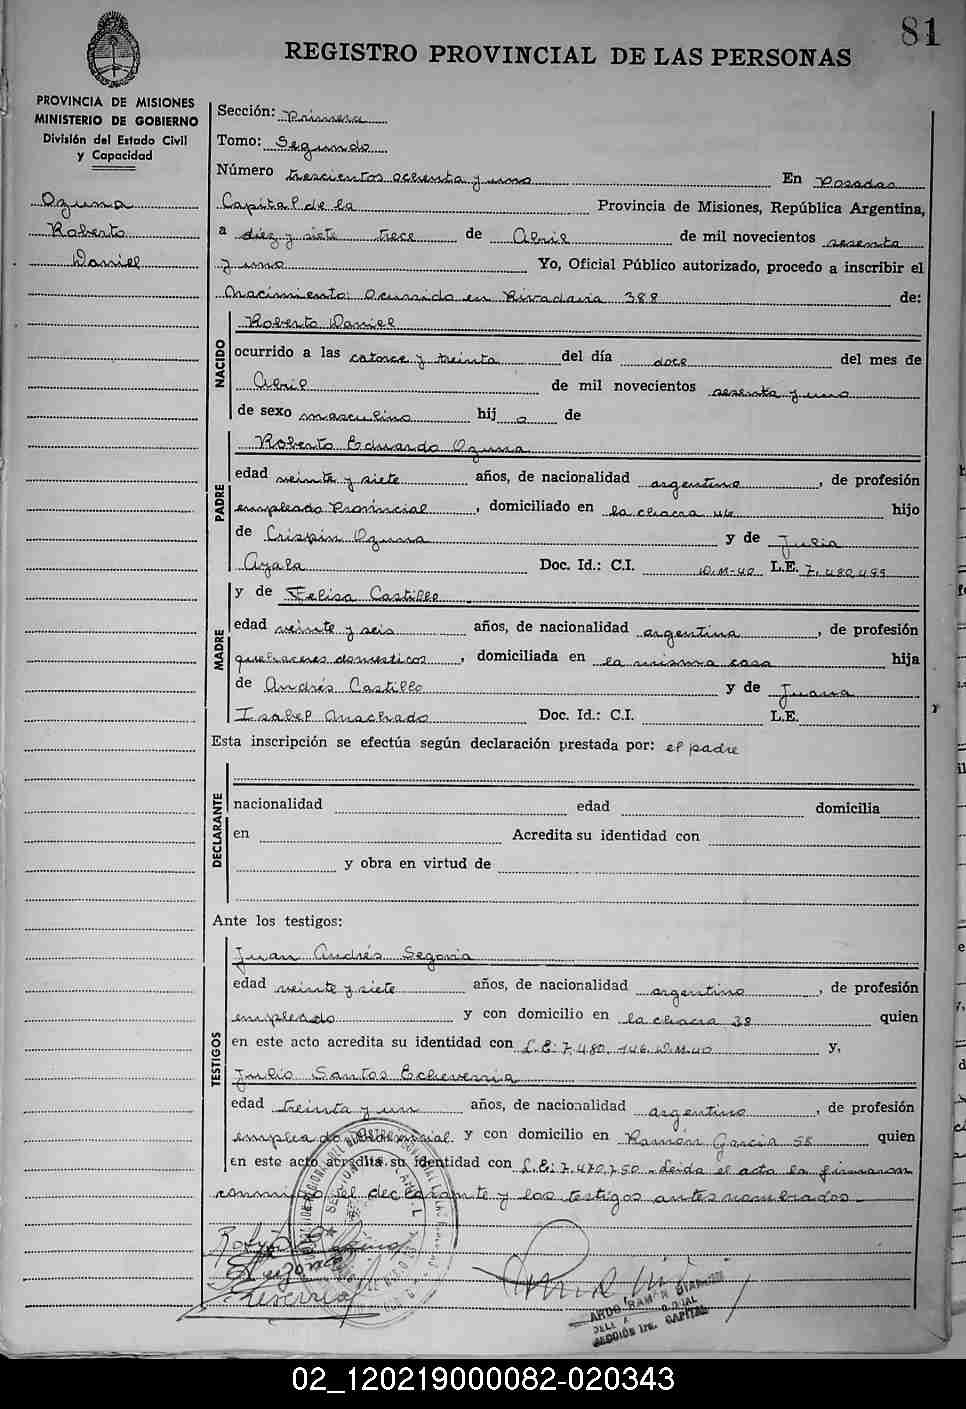 81
REGISTRO PROVINCIAL DE LAS PERSONAS
PROVINCIA DE MISIONES
MINISTERIO DE GOBIERNO
División del Estado Civil
y Capacidad
Ozuna
Roberto
Daniel
Sección: Primera
Tomo: Segundo
Número trescientos ochenta y uno En Posadas
Capital de la Provincia de Misiones, República Argentina,
a diez y siete trece de Abril de mil novecientos sesenta
y uno Yo, Oficial Público autorizado, procedo a inscribir el
Nacimiento: Ocurrido en Rivadavia 388 de:
NACIDO
Roberto Daniel
ocurrido a las catorce y treinta del día doce del mes de
Abril de mil novecientos sesenta y uno
de sexo masculino hij o de
PADRE
Roberto Eduardo Ozuna
edad veinte y siete años, de nacionalidad argentino, de profesión
empleado Provincial, domiciliado en la chacra hijo
de Crispín Ozuna y de Julia
Ayala Doc. Id.: C.I. D.M-40 L.E. 7.480.495
MADRE
y de Felisa Castillo
edad veinte y seis años, de nacionalidad argentina, de profesión
quehaceres domesticos, domiciliada en la misma casa hija
de Andrés Castillo y de Juana
Isabel Machado Doc. Id.: C.I. L.E.
Esta inscripción se efectúa según declaración prestada por: el padre
DECLARANTE
nacionalidad edad domicilia
en Acredita su identidad con
y obra en virtud de
Ante los testigos:
TESTIGOS
Juan Andrés Segovia
edad veinte y siete años, de nacionalidad argentino, de profesión
empleado y con domicilio en la chacra 38 quien
en este acto acredita su identidad con L.E: 7.480.146. D.M.40 y,
Julio Santos Echeverria
edad treinta y un años, de nacionalidad argentino, de profesión
empleado y con domicilio en Ramón Garcia 58 quien
en este acto acredita su identidad con L.E: 7.470.750 - Leida el acta la firmaron
conmigo el declarante y los testigos antes nombrados -
SECCIÓN 1ra. CAPITAL
02_120219000082-020343